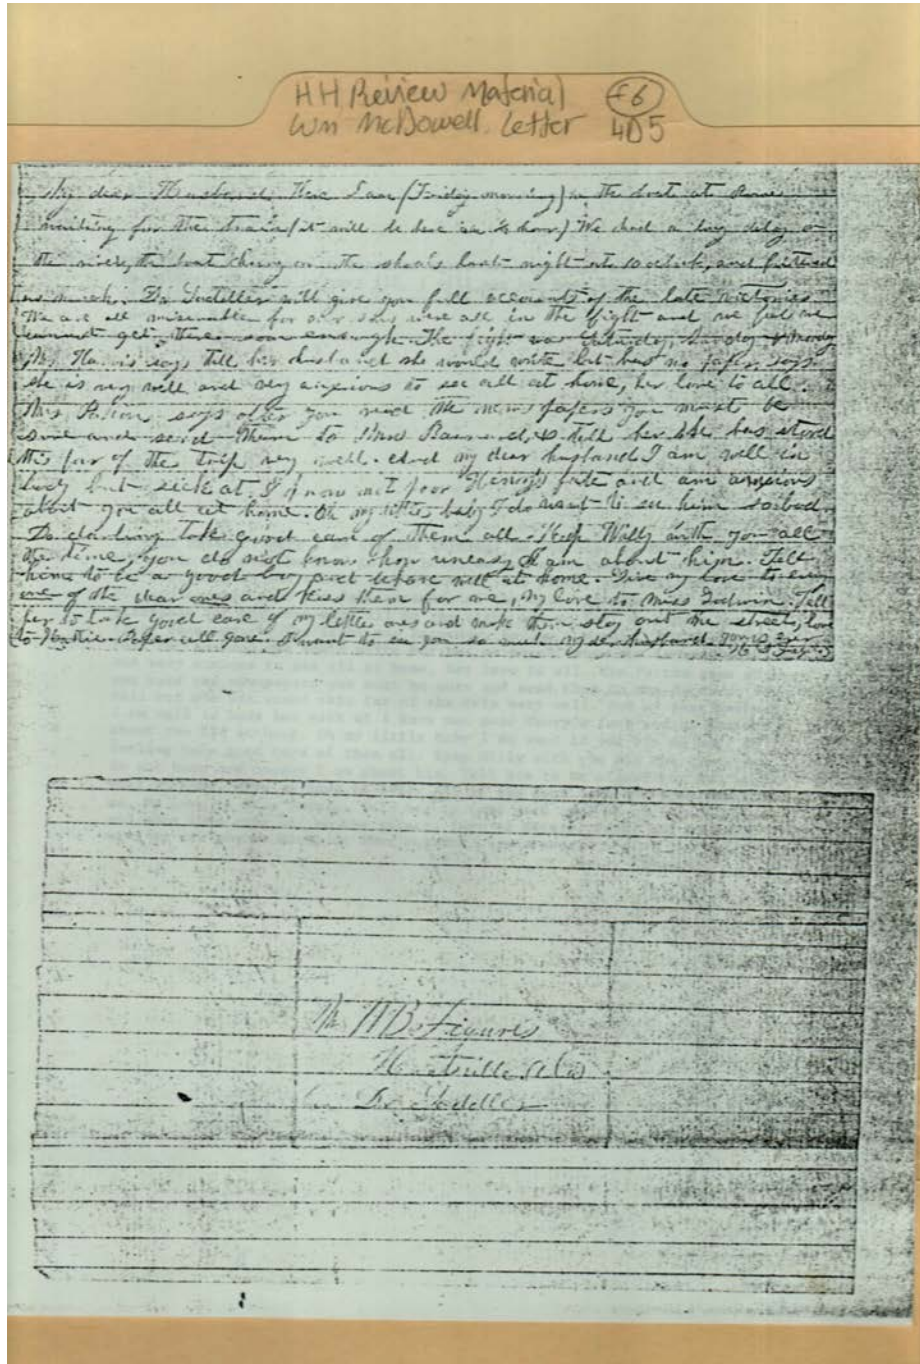 HH Review Material f6
Wm McDowell Letter 4D5
My dear Husband, Here I am (Friday morning) in the boat at Rome
waiting for the train (it will be here in ½ hour) We had a long delay on
the river, the boat hung on the shoals last night at 10 oclock, and
as much. Dr will give you full accounts of the late victories
We are all miserable for our sons were all in the fight and we feel we
cannot get there soon enough. The fight was Saturday, Sunday & Monday
Mrs Harris says tell her husband she would write but has no paper, says
she is very well and very anxious to see all at home, her love to all.
Mrs Patton says after you read the news papers you must be
sure and send them to Mrs & tell her she has stood
this far of the trip very well. And my dear husband I am well in
body but sick at I know not poor Henry's fate and am anxious
about you all at home. Oh my little baby I do want to see him so bad.
Do darling take good care of them all. Keep Willy with you all
the time, you do not know how uneasy I am about him. Tell
him to be a good boy and behave well at home. Give my love to every
one of the dear ones and kiss them for me, My love to Miss Godwin. Tell
her to take good care of my little ones and make them stay out the street, love
to Paper all gone. I want to see you so much my dear husband. yours ever
Mr WB Figures
Huntsville Ala
Dr